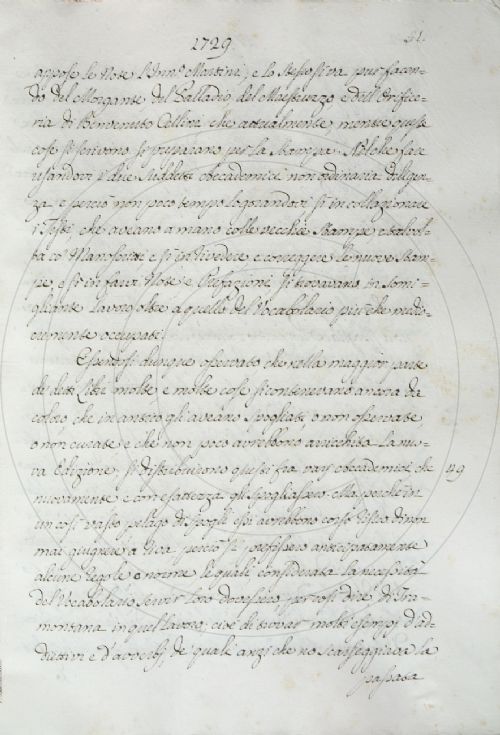 1729
51.
appose le Note l'Inn.º Martini; e lo stesso si va pur facen-
do del Morgante del Palladio, del Masuccio e dell'Orifice-
ria di Benvenuto Cellini che attualmente, mentre queste
cose si scrivono si preparano per la Stampa. Nel che fare
usandovi i due suddetti Accademici non ordinaria diligen-
za e perciò non poco tempo logorandovi sì in collazionare
i Testi che aveano a mano colle vecchie Stampe e talvol-
ta co' Manoscritti e sì in rivedere e correggere le nuove Stam-
pe, e sì in farvi Note e Prefazioni si trovavano in somi-
gliante lavoro oltre a quello del Vocabolario più che medio-
cremente occupati.
Essendosi dunque osservato che nella maggior parte
de' detti Libri molte e molte cose si contenevano ancora da
coloro che in antico gli aveano spogliati, o non osservate
o non curate e che non poco avrebbono arricchita la nuo-
va Edizione, si distribuirono questi fra varj Accademici che
49
nuovamente e con esattezza gli spogliassero. Ma perchè in
un così vasto pelago di spogli essi avrebbono corso risco di non
mai giugnere a riva perciò si prefissero anticipatamente
alcune regole o norme le quali considerata la necessità
del Vocabolario servir loro dovessero, per così dire di Tra-
montana in quel lavoro; cioè di trovar molti esempj d'ad-
diettivi e d'avverbj, de' quali anzi che no scarseggiava la
passata